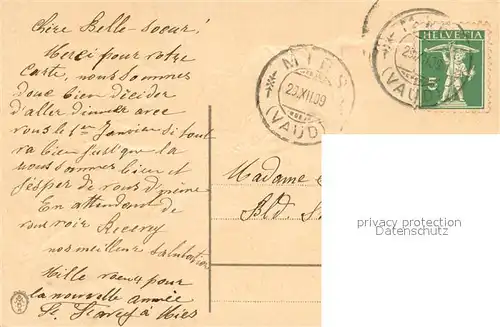 Chère Belle-soeur!
Merci pour votre
carte, nous sommes
donc bien décidés
d'aller dinner avec
vous le 1er Janvier si tout
va bien jusque la
nous sommes bien et
j'espèr de vous d'même
En attendant de
vous voir Recevez
nos meilleurs salutations
Mille voeux pour
la nouvelle année
à Mies
MIES
29.XII.09
(VAUD)
HELVETIA
5
(VAUD)
Madame
Bld.
privacy protection
www.ansichtskarten-center.de